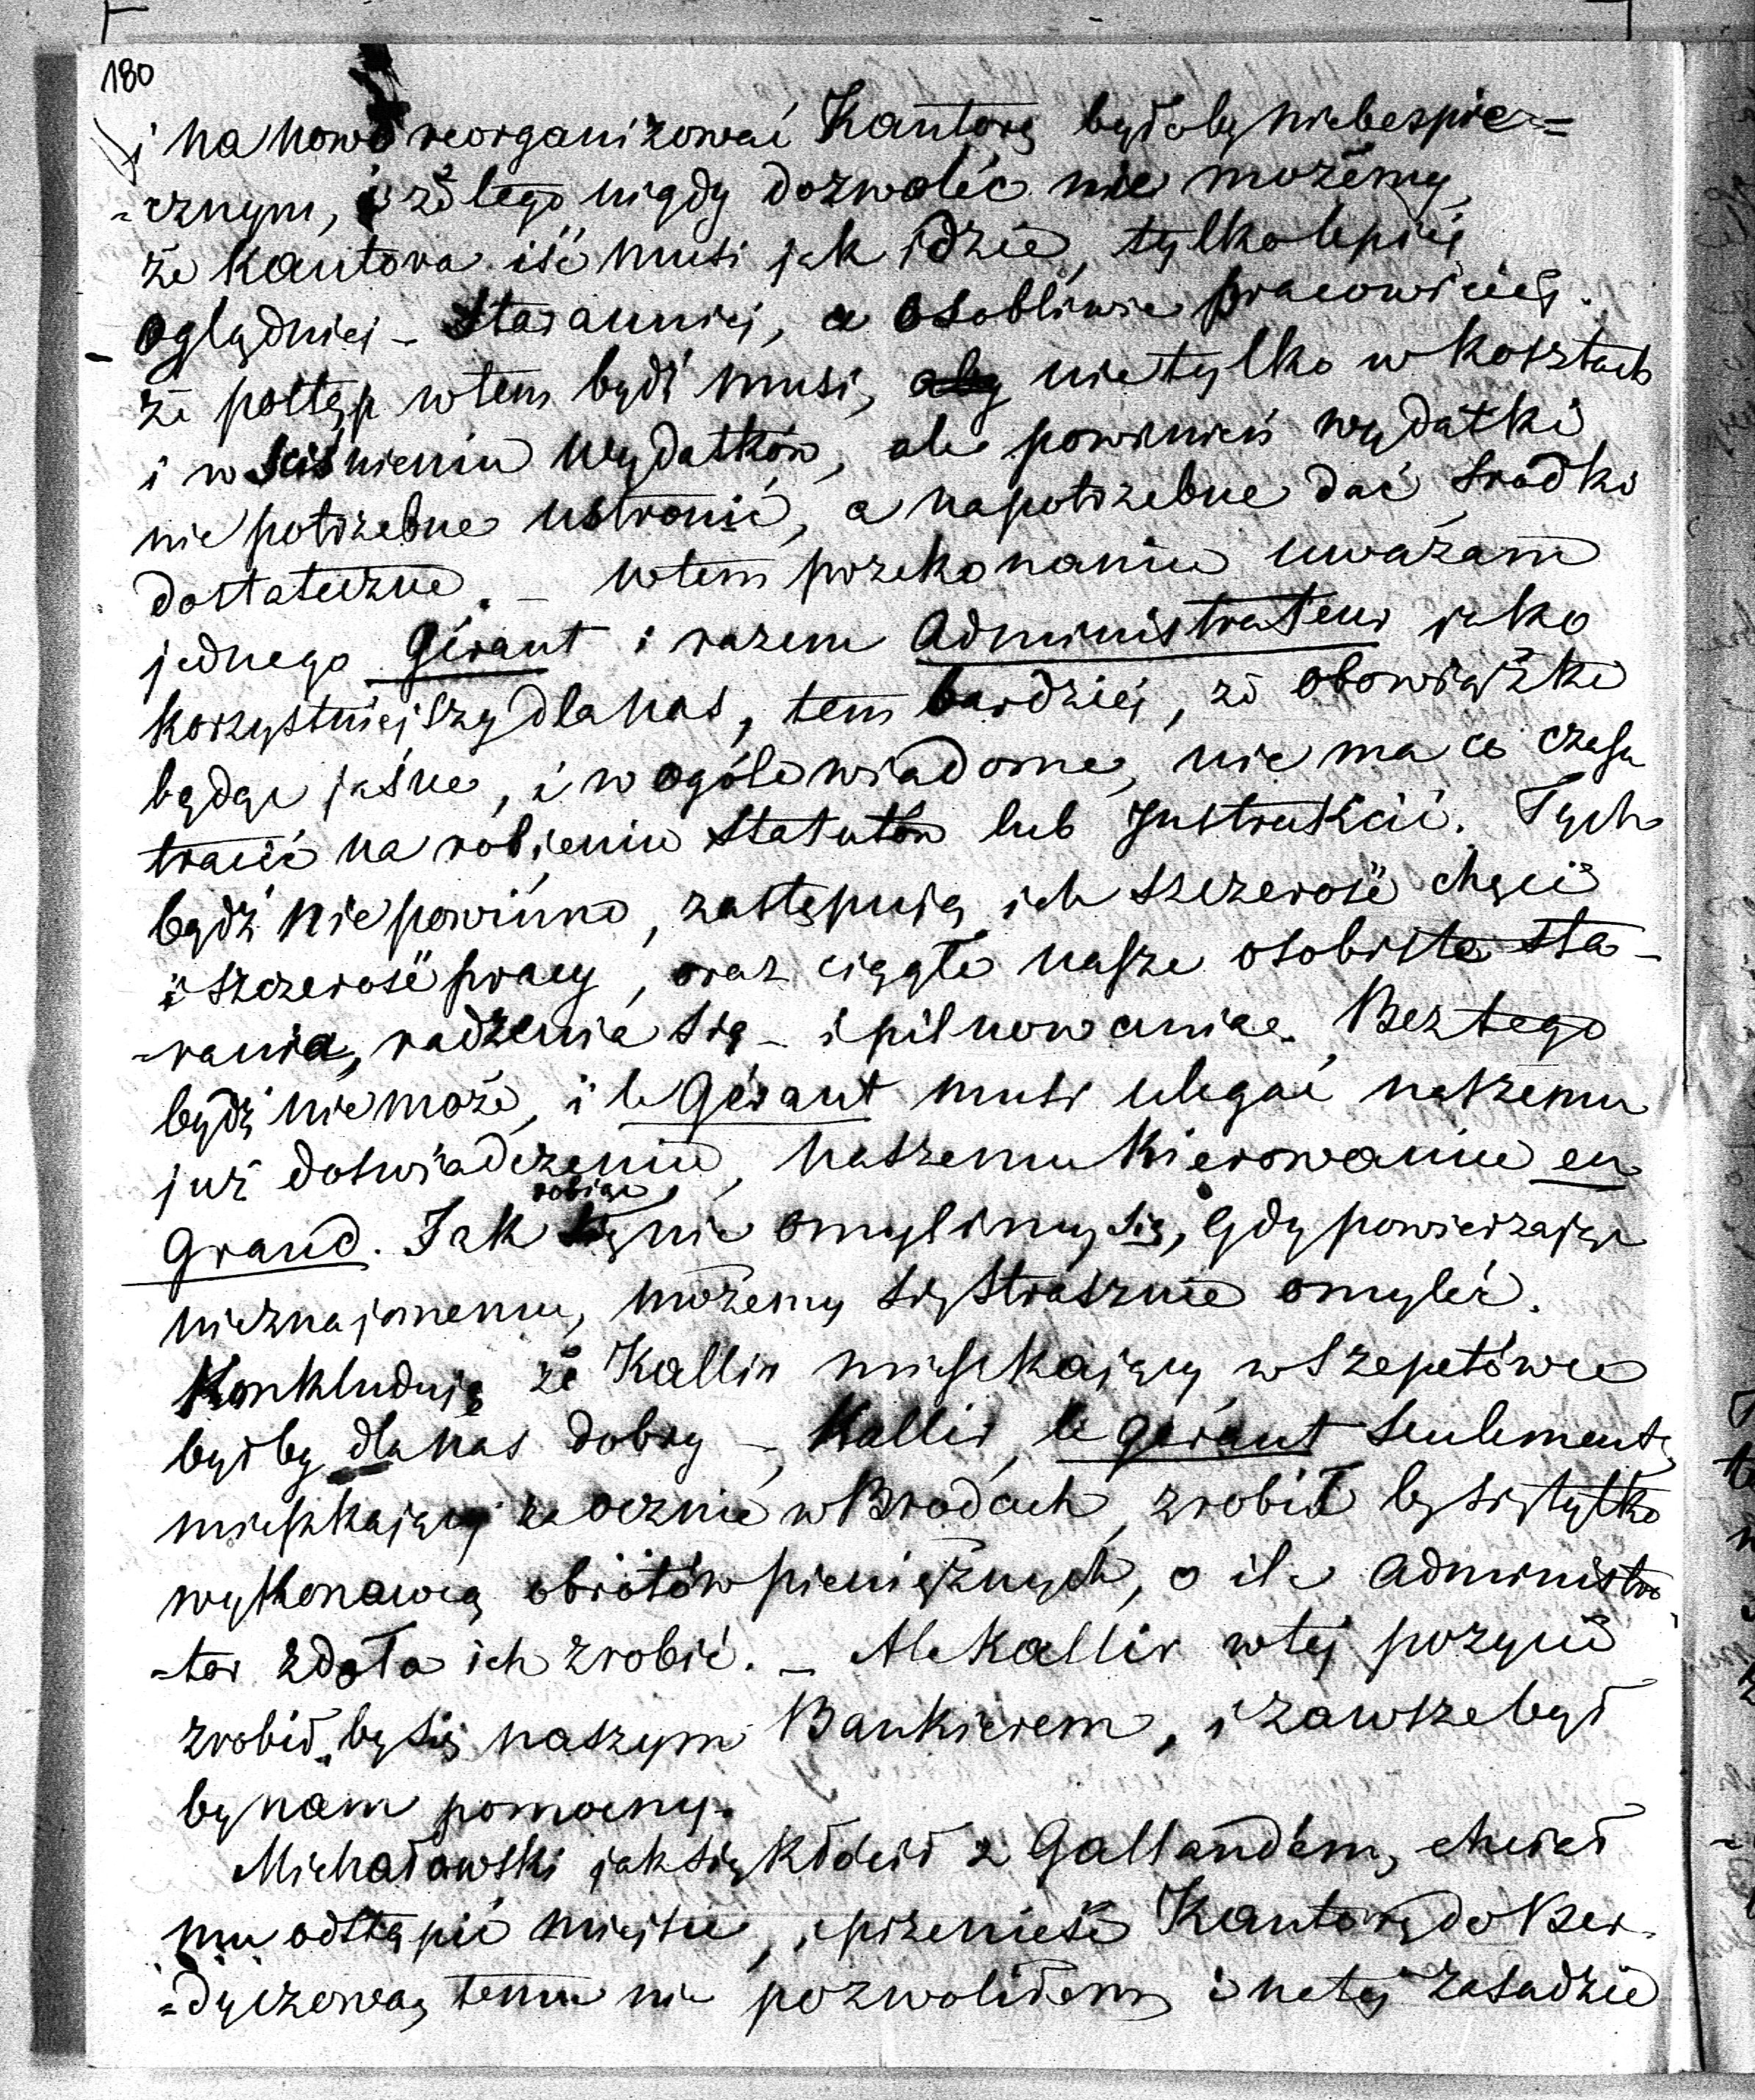 180
i na nowo reorganizować Kantorę byłoby niebespie=
-cznym, i że tego nigdy dozwolić nie możemy,
że Kantora iść musi jak idzie, tylko lepiéj
oglądniéj – staranniéj, a osobliwie pracowiciéj.
że postęp wtem bydź musi, nie tylko w kosztach
i w ściśnieniu wydatków, ale powinien wydatki
niepotrzebne ustronić, a na potrzebne dać środki
dostateczne. – wtem przekonaniu uważam
jednego Gérant i razem Administrateur jako
korzystniejszy dla nas, tem bardziéj, że obowiązki
będąc jaśne, i w ogóle wiadome, nie ma co czasu
tracić na robieniu statutów lub Instrukcii. Tych
bydź niepowinno, zastępują ich szczerość chęci
i szczerość pracy, oraz ciągłe nasze osobiste sta-
-rania, radzenia się – i pilnowania. Bez tego
bydź nie może, i le Gérant musi ulegać naszemu
już doświadczeniu, naszemu kierowaniu en
Grand. Jak robiąc nie omylimy się, gdy powierzając
nieznajomemu, możemy się strasznie omylić.
Konkluduję że Kallir mieszkający w Szepetówce
byłby dla nas dobry – Kallir, le gérant seulement,
mieszkający zaocznie w Brodach, zrobił by się tylko
wykonawcą obrótów pieniężnych, o ile Administra
-tor zdoła ich zrobić. – Ale Kallir w téj pozycii
zrobił by się naszym Bankierem, i zawsze był
by nam pomocny.
Michałowski jak się kłócił z Gallandem, chciał
mu odstąpić miejsce, i przenieść Kantorę do Ber-
=dyczowa, temu nie pozwoliłem i na téj zasadzie